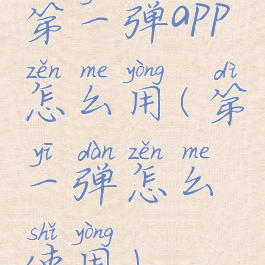 第一弹app
zěn me yòng dì
怎么用(第
yī dàn zěn me
一弹怎么
shǐ yòng
使用)